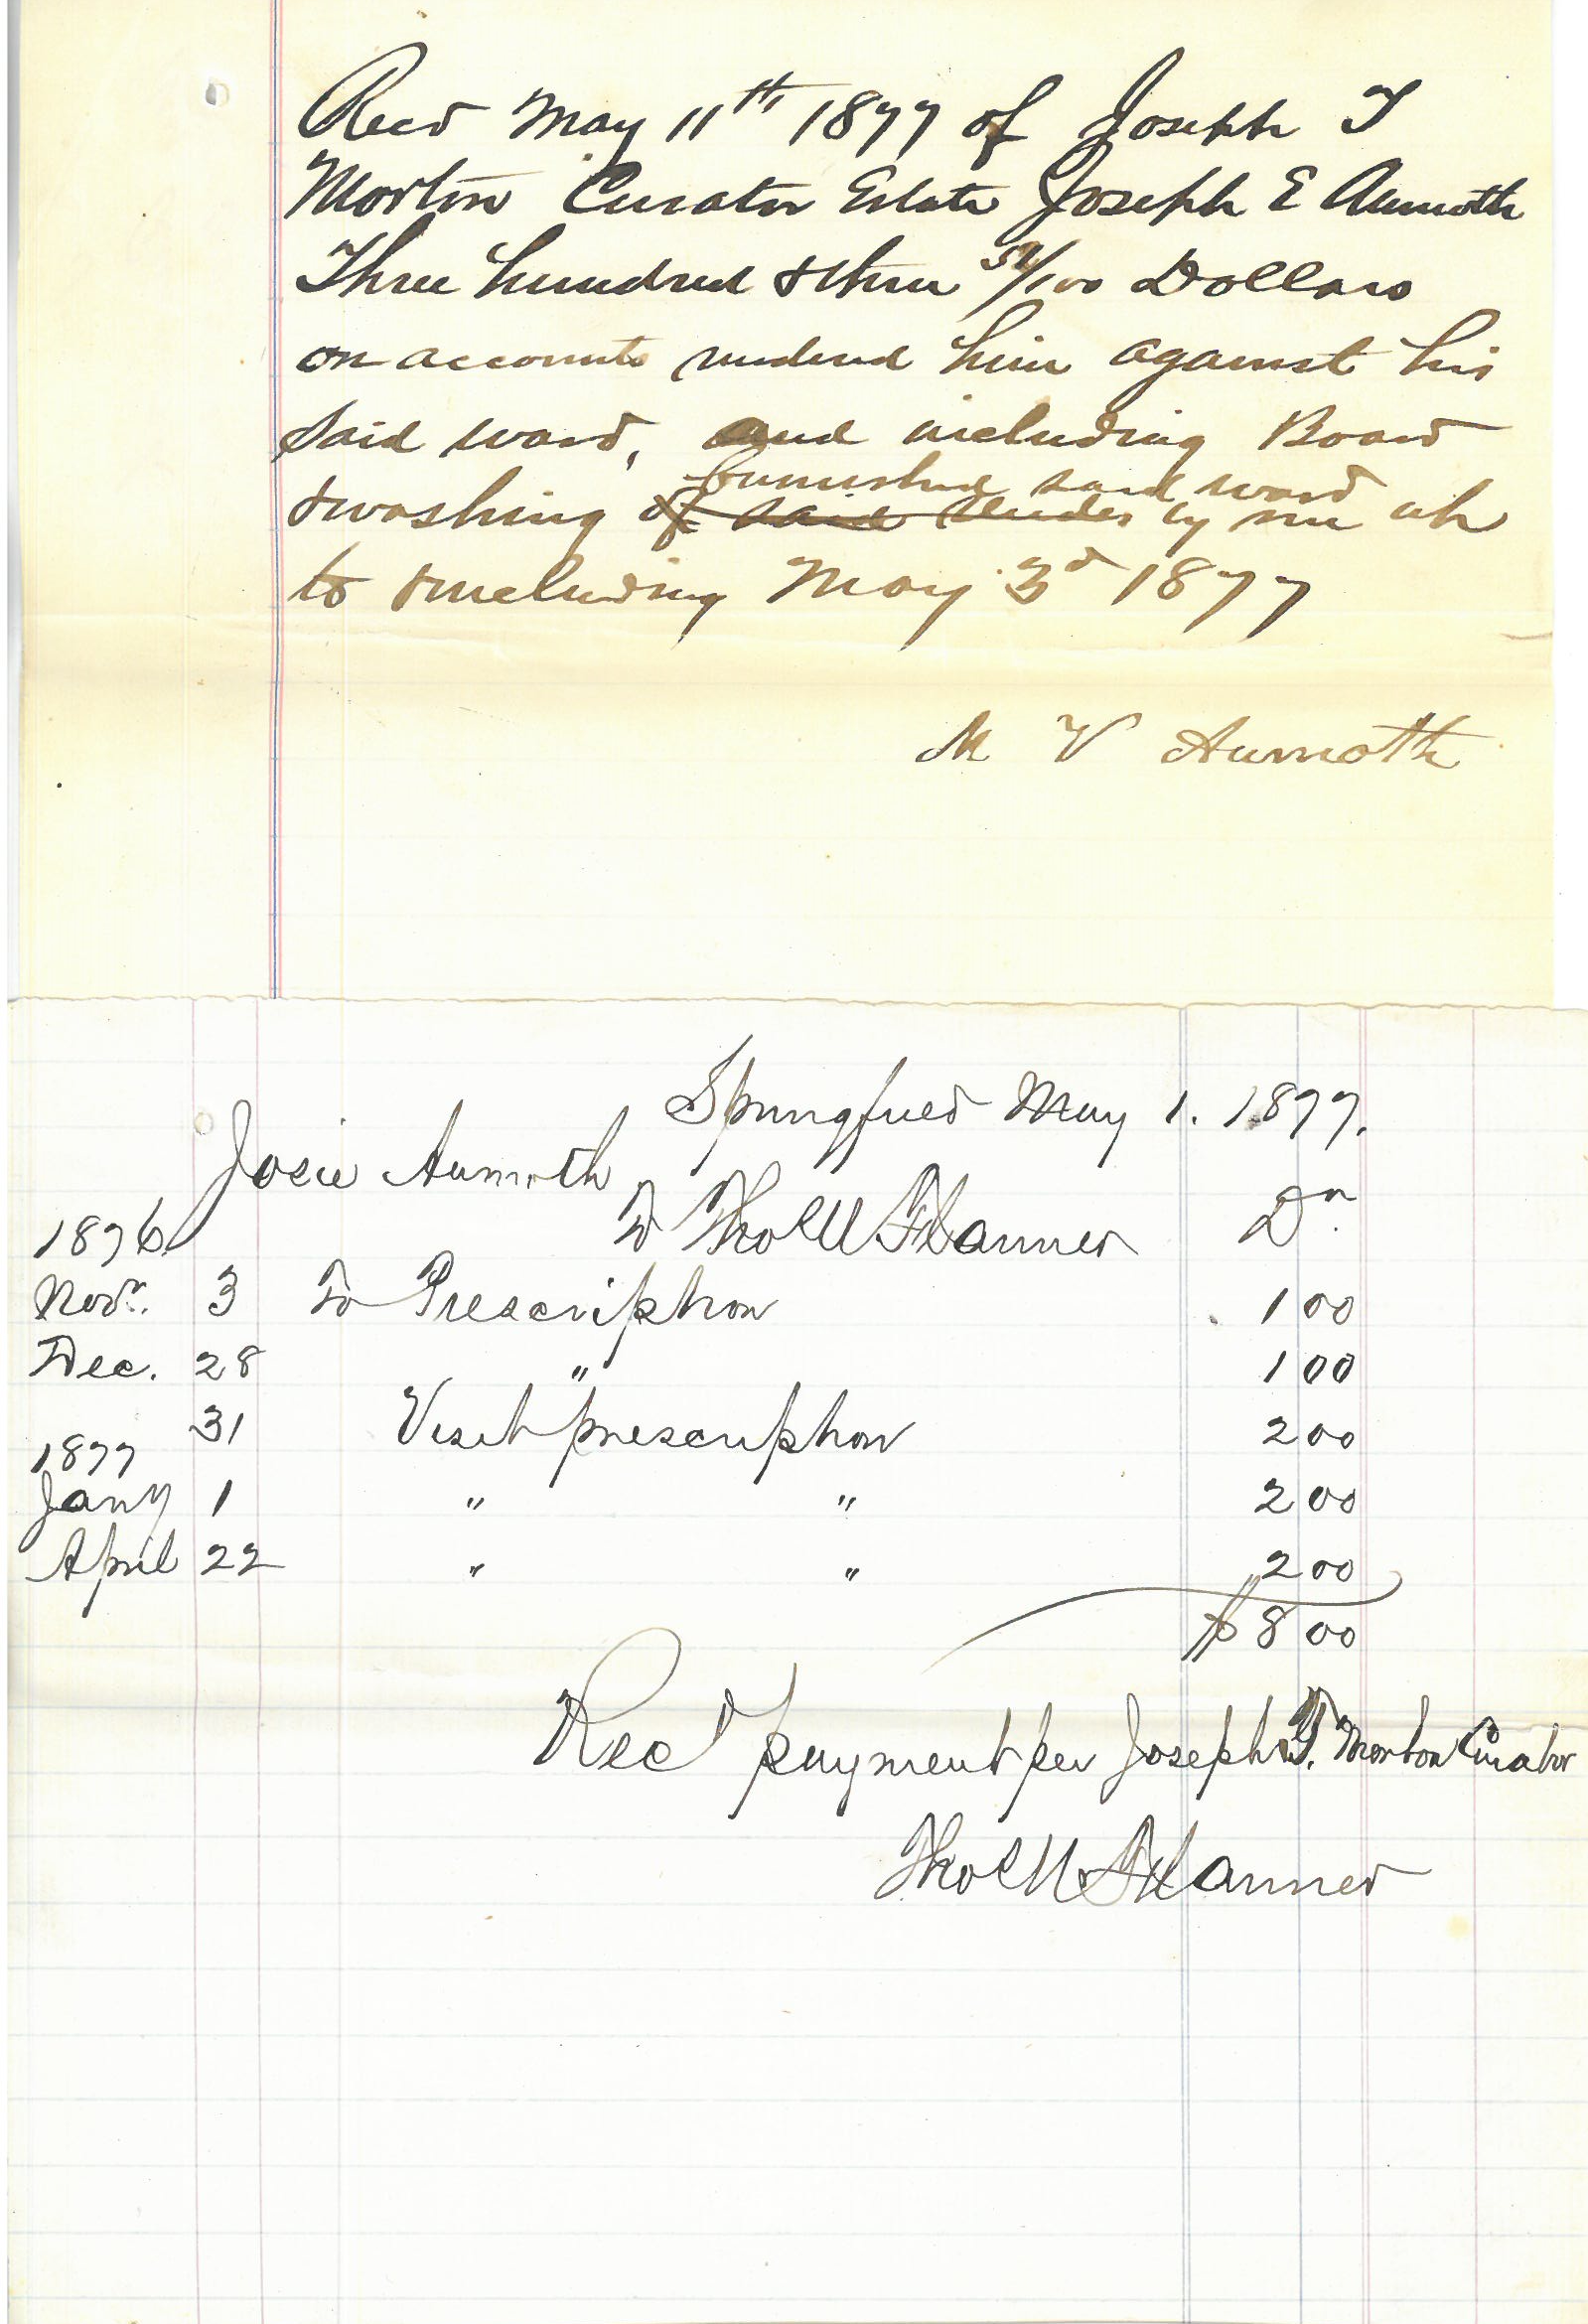 Recd May 11th 1877 of Joseph T
Morton Curator Estate Joseph E Aumoth
Three hundred & three 54/100 Dollars
on accounts rendered him against his
said ward, and including Board
furnished said ward
& washing of said by me up
to & including May 3d 1877
M V Aumoth
Springfield May 1. 1877.
Josie Aumoth
To Thos U Flanner Dr.
1876
Novr. 3 To Prescription 1 00
Dec. 28 " 1 00
31 Visit prescription 2 00
1877
Jany 1 " " 2 00
April 22 " " 2 00
$ 8 00
Recd payment per Joseph T. Morton Curator
Thos U Flanner